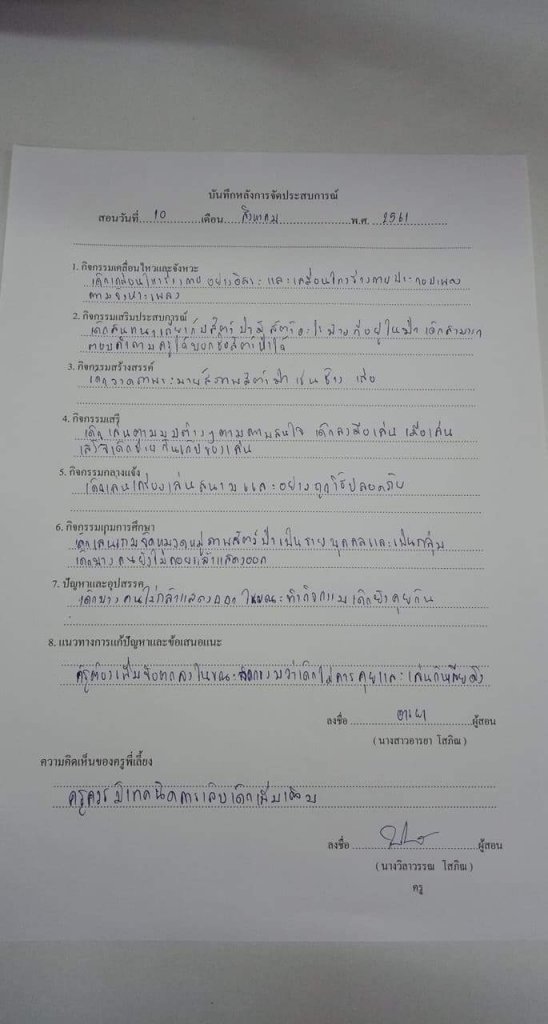 บันทึกหลังการจัดประสบการณ์
สอนวันที่ 10 เดือน สิงหาคม พ.ศ. 2561
1. กิจกรรมเคลื่อนไหวและจังหวะ
เด็กเคลื่อนไหวร่างกายอย่างอิสระ และเคลื่อนไหวร่างกายประกอบเพลง
ตามจังหวะเพลง
2. กิจกรรมเสริมประสบการณ์
เด็กสนทนาเกี่ยวกับสัตว์ป่ามีสัตว์อะไรบ้างที่อยู่ในป่า เด็กสามารถ
ตอบคำถามครูได้บอกชื่อสัตว์ป่าได้
3. กิจกรรมสร้างสรรค์
เด็กวาดภาพระบายสีภาพสัตว์ป่า เช่น ช้าง เสือ
4. กิจกรรมเสรี
เด็กเล่นตามมุมต่างๆตามความสนใจ เด็กลงมือเล่น เมื่อเล่น
เสร็จเด็กช่วยกันเก็บของเล่น
5. กิจกรรมกลางแจ้ง
เด็กเล่นเครื่องเล่นสนามและอย่างถูกวิธีปลอดภัย
6. กิจกรรมเกมการศึกษา
เด็กเล่นเกมจัดหมวดหมู่ภาพสัตว์ป่าเป็นรายบุคคลและเป็นกลุ่ม
เด็กบางคนยังไม่ค่อยกล้าแสดงออก
7. ปัญหาและอุปสรรค
เด็กบางคนไม่กล้าแสดงออก ในขณะทำกิจกรรมเด็กยังคุยกัน
8. แนวทางการแก้ปัญหาและข้อเสนอแนะ
ครูต้องเพิ่มข้อตกลงในขณะ ว่าเด็กไม่ควรคุยและเล่นกันเสียงดัง
ลงชื่อ อารยา ผู้สอน
(นางสาวอารยา โสภิณ)
ความคิดเห็นของครูพี่เลี้ยง
ครูควรมีเทคนิคการเก็บเด็กเพิ่มเติม
ลงชื่อ ผู้สอน
(นางวิลาวรรณ โสภิณ)
ครู